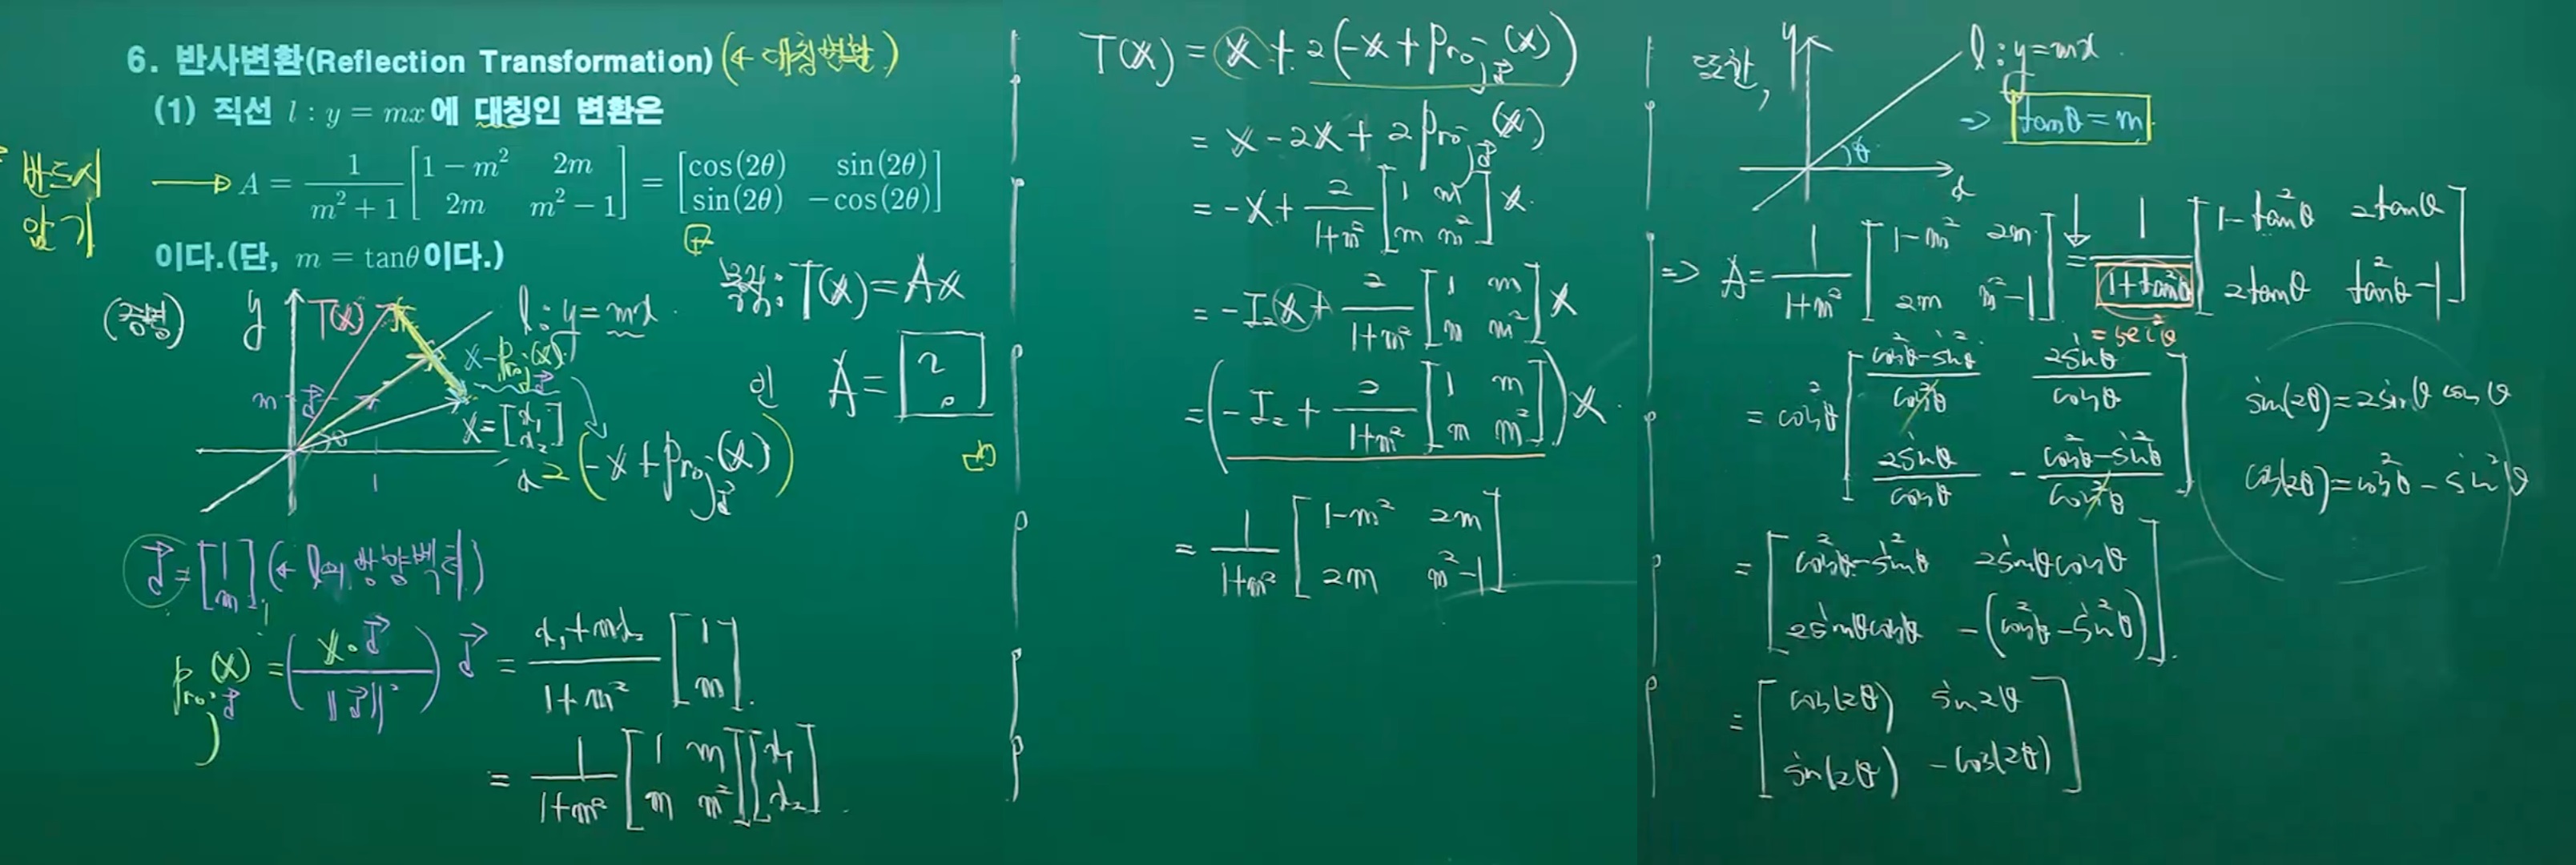 6. 반사변환(Reflection Transformation) (← 대칭변환)
(1) 직선 l : y = mx에 대칭인 변환은
반드시 암기
→ A = 1/(m²+1) [1-m² 2m; 2m m²-1] = [cos(2θ) sin(2θ); sin(2θ) -cos(2θ)]
이다.(단, m = tanθ이다.)
(증명)
y
T(x)
l : y = mx
x - proj_d(x)
m
d
θ
x = [x₁; x₂]
1
x
2(-x + proj_d(x))
목적: T(x) = Ax
인 A = [?]
d = [1; m] (← l의 방향벡터)
proj_d(x) = (x·d / ‖d‖²) d = (x₁+mx₂)/(1+m²) [1; m].
= 1/(1+m²) [1 m; m m²][x₁; x₂].
T(x) = x + 2(-x + proj_d(x))
= x - 2x + 2proj_d(x)
= -x + 2/(1+m²) [1 m; m m²] x.
= -I₂x + 2/(1+m²) [1 m; m m²] x
= (-I₂ + 2/(1+m²) [1 m; m m²]) x.
= 1/(1+m²) [1-m² 2m; 2m m²-1].
또한,
y
l : y = mx.
⇒ tanθ = m
θ
x
⇒ A = 1/(1+m²) [1-m² 2m; 2m m²-1] = 1/(1+tan²θ) [1-tan²θ 2tanθ; 2tanθ tan²θ-1]
= sec²θ
= cos²θ [(cos²θ-sin²θ)/cos²θ 2sinθ/cosθ; 2sinθ/cosθ -(cos²θ-sin²θ)/cos²θ]
sin(2θ) = 2sinθ cosθ
cos(2θ) = cos²θ - sin²θ
= [cos²θ-sin²θ 2sinθcosθ; 2sinθcosθ -(cos²θ-sin²θ)].
= [cos(2θ) sin2θ; sin(2θ) -cos(2θ)]